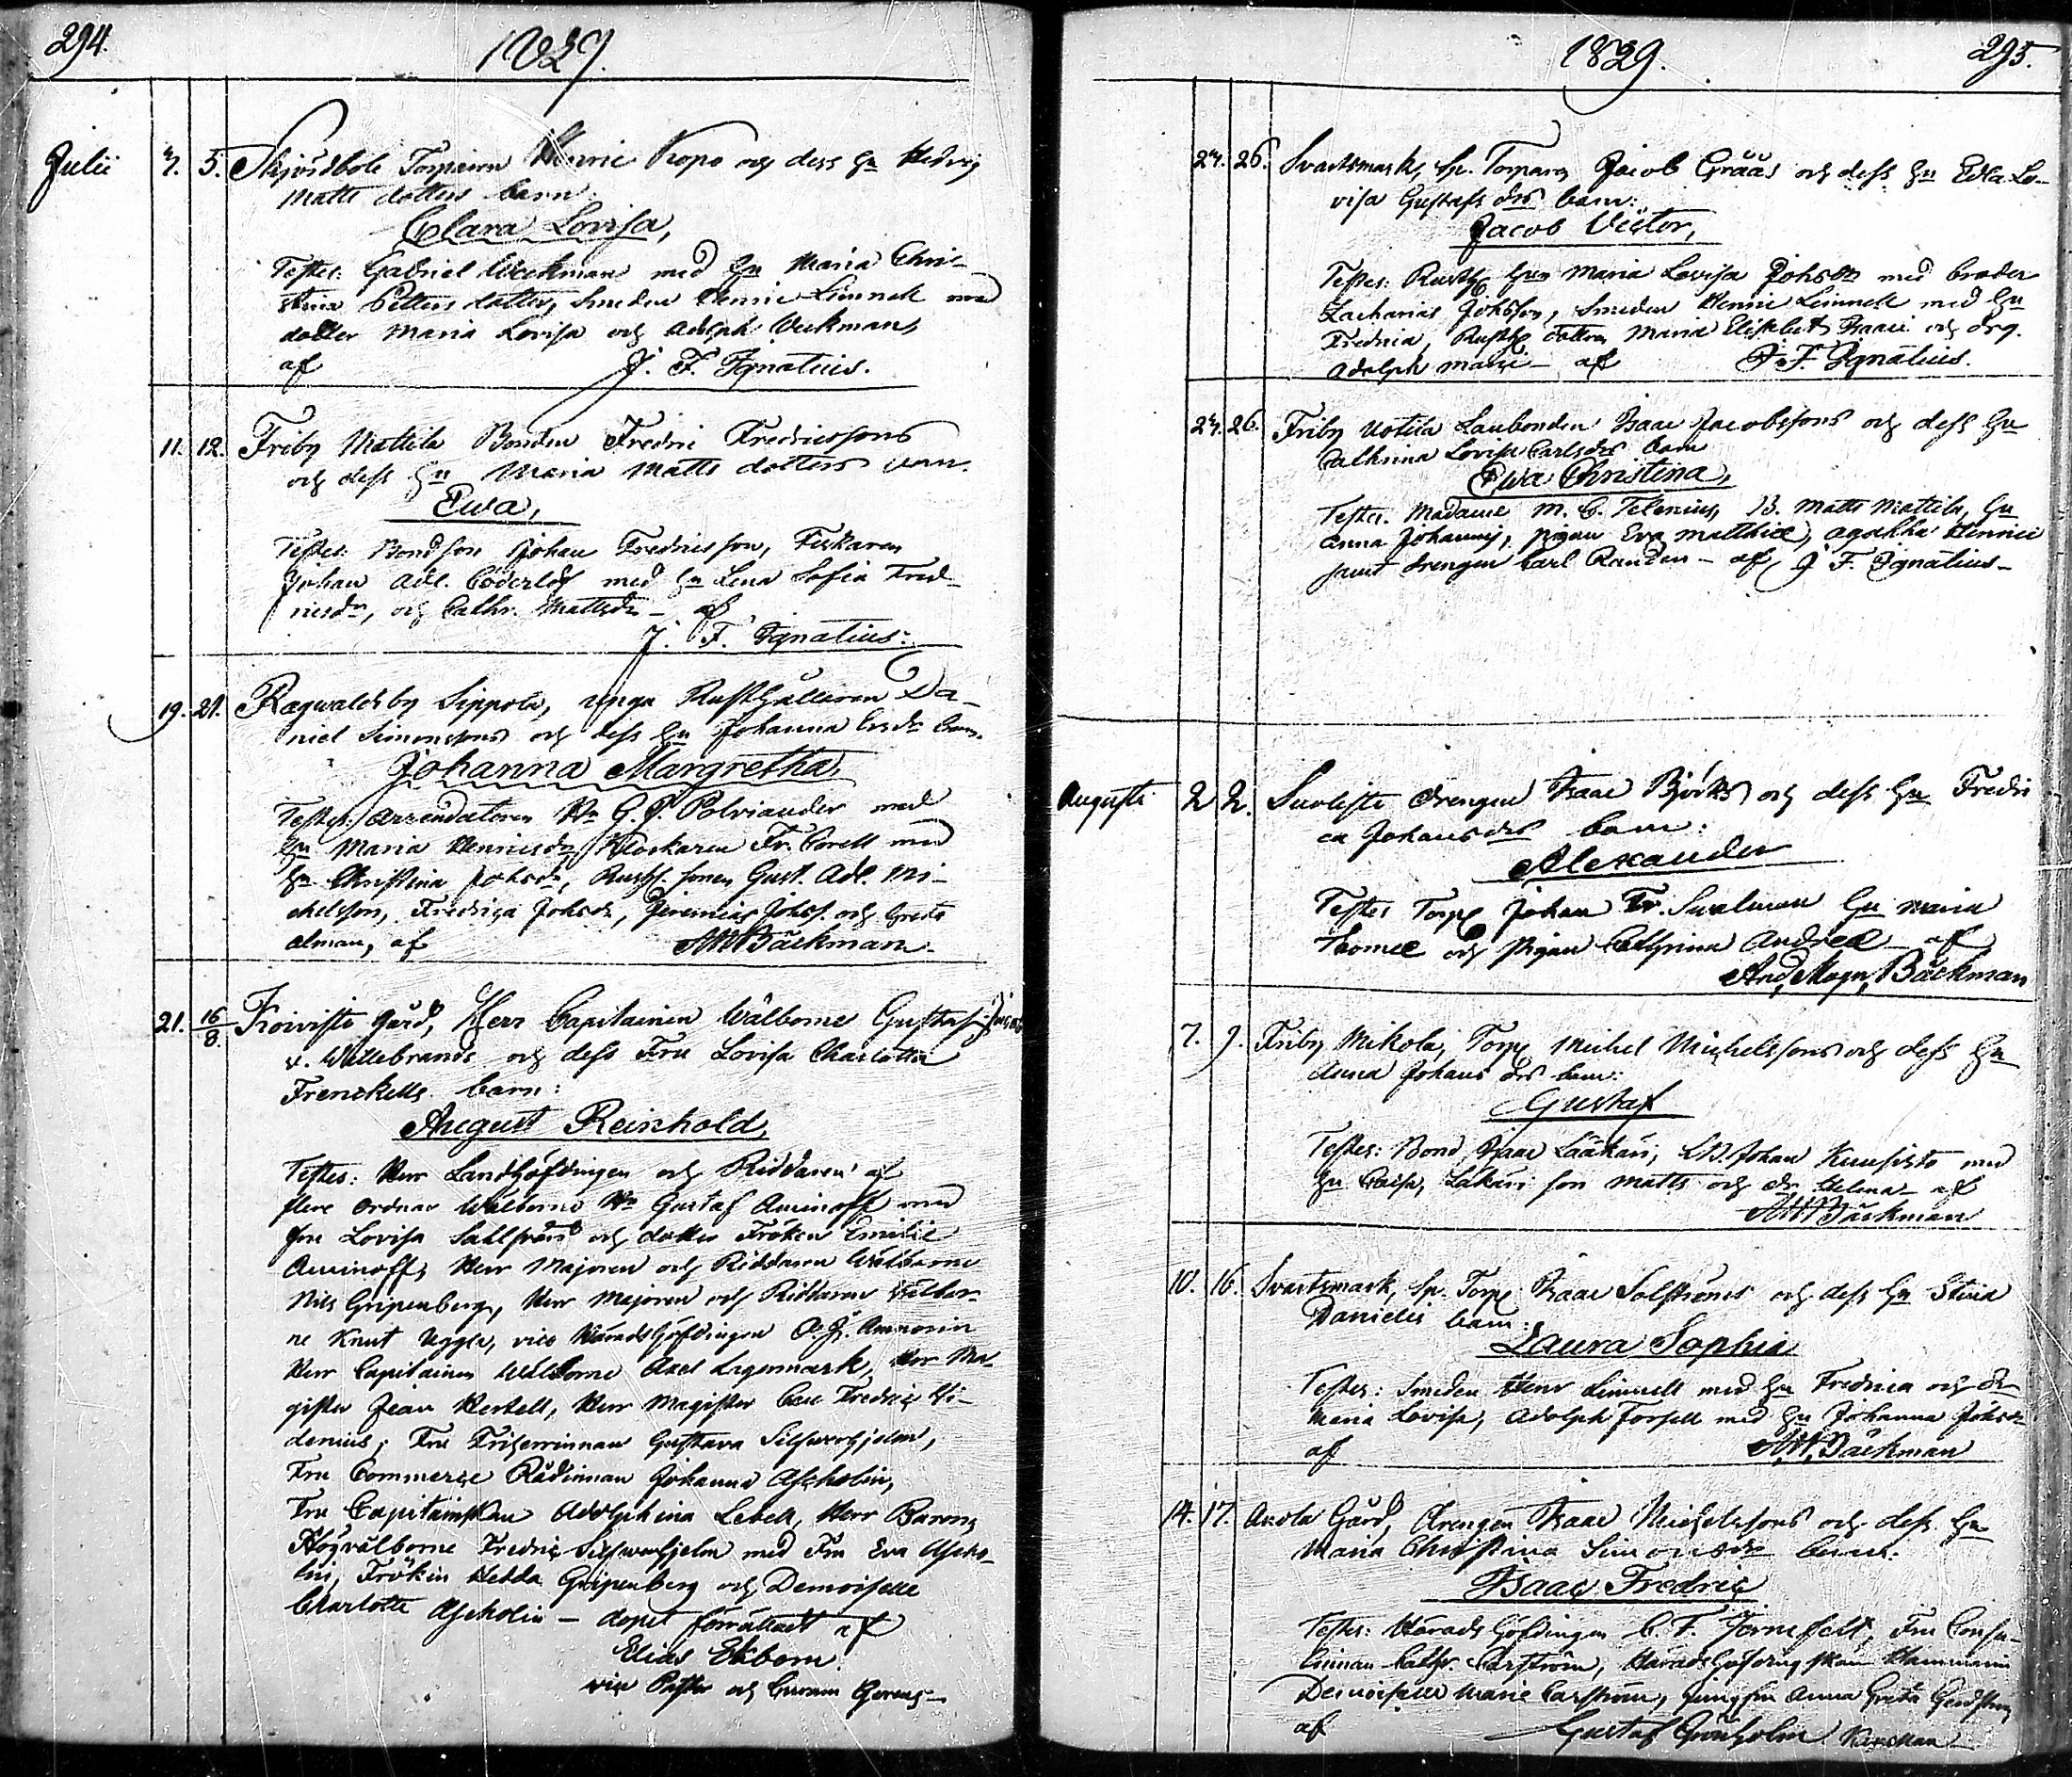 294.
1829.
Julii 3. 5. Skjördbole Torparen Henric Kopo och dess Hu Hedvig
Matts dotters barn:
Clara Lovisa,
Testes: Gabriel Weckman med Hu Maria Chri-
stina Petters dotter, Smeden Henric Limnell med
dotter Maria Lovisa och Adolph Weckman,
af J. F. Ignatius.
11. 12. Friby Mattila Bonden Fredric Fredricssons
och dess Hu Maria Matts dotters barn.
Ewa,
Testes: Bondson Johan Fredricsson, Fiskaren
Johan Adl. Cöderlöf med Hu Lena Sofia Fred-
ricsdr, och Cathr. Mattsdr – af
J. F. Ignatius:
19. 21. Ragwaldsby Sippola, unga Rusthållaren Da-
niel Simonssons och dess Hu Johanna barn.
Johanna Margretha,
Testes: Arrendatoren Hr G. P. Polviander med
Hu Maria Henricsdr, Klockaren Fr. Corell med
Hu Christina Johsdr, Rusth. sonen Gust. Adl. Mi-
chelsson, Fredrica Johsdr, Jeremias Johss. och Greta
alman, af AM Bäckman.
21. 16/8. Koivisto gård, Herr Capitainen Wälborne Gustaf
v. Willebrands och dess Fru Lovisa Charlotta
Frenckells barn:
August Reinhold,
Testes: Herr Landshöfdingen och Riddaren af
flere ordnar Wälborne Hr Gustaf Aminoff med
fru Lovisa och dotter Fröken Emilie
Aminoff, Herr Majoren och Riddaren Wälborne
Nils Gripenberg, Herr Majoren och Riddaren Wälbor-
ne Knut Uggla, vice Häradshöfdingen O. J. Ammorin
Herr Capitainen Wälborne Axel Lagermark, Herr Ma-
gister Jean Hertell, Herr Magister Carl Fredric Hi-
denius, Fru Friherrinnan Gustava Silfwerhjelm,
Fru Commerce Rådinnan Johanna Ascholin,
Fru Capitainskan Adolphina Lebell, Herr Baron
Högwälborne Fredric Silfwerhjelm med Fru Eva Ascho-
lin, Fröken Hedda Gripenberg och Demoiselle
Charlotte Ascholin – dopet förrättadt af
Elias Ekbom.
vice Pastor och
1829. 295.
24. 26. Svartsmark, Sp. Torparen Jacob Grääs och dess Hu Edla Lo-
visa Gustafs drs barn:
Jacob Victor,
Testes: Rusth. Hun Maria Lovisa Johsdr med broder
Zacharias Johsson, Smeden Henric Limnell med Hu
Fredrica, Rusth. dottren Maria Elisabeth Isaaci och drg.
Adolph – af J. F. Ignatius.
24. 26. Friby Uotila Lanbonden Isaac Jacobssons och dess Hu
Cathrina Lovisa Carlsdrs barn
Ewa Christina,
Testes. Madame M. C. Telenius, B. Matts Mattila, Hu
Anna Johannis, pigan Eva Matthiæ, Agatha Henrici
samt drengen Carl Randen – af J. F. Ignatius –
Augusti 2 2. Suoliste drengen Isaac Björks och dess Hu Fredri
ca Johansdrs barn:
Alexander
Testes Torp. Johan Fr. Swalman Hu Maria
Thomæ och pigan Cathrina Andreæ – af
And. Magn. Bäckman
7. 9. Friby Mikola, Torp. Michel Michelssons och dess Hu
Anna Johans drs barn:
Gustaf
Testes: Bond. Isaac Lääkäri, LB. Johan Kuusisto med
Hu Caisa, Läkäri son Matts och dr Helena – af
AM Bäckman
10. 16. Svartsmark, Sp. Torp. Isaac Solströms och dess Hu Stina
Danielis barn:
Laura Sophia
Testes: Smeden Henr Limnell med Hu Fredrica och dr
Maria Lovisa, Adolph Forsell med Hu Johanna Johsdr
af AM Bäckman
14. 17. Anola Gård, Drengen Isaac Michelssons och dess Hu
Maria Christina Simonsdrs barn:
Isaac Fredric
Testes: Häradshöfdingen C. F. Jernefelt, Fru Consu-
linnan Cathr. Carström, Häradshöfdingskan
Demoiselle Marie Carström, Jungfru Anna Greta
af Gustaf Grönholm